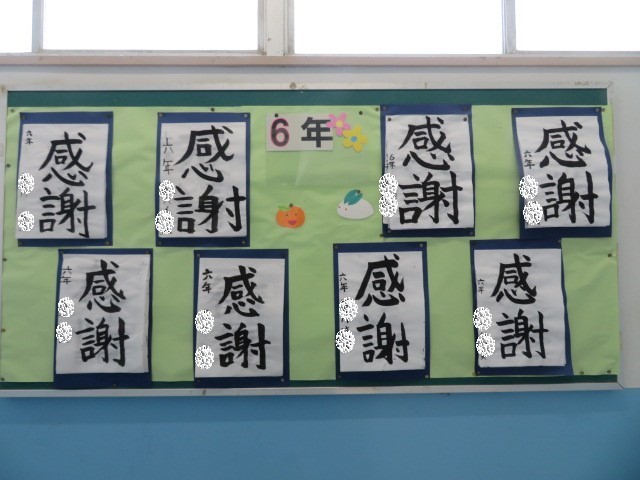 6年
六年
感謝
六年
感謝
6年
感謝
六年
感謝
六年
感謝
六年
感謝
六年
感謝
六年
感謝